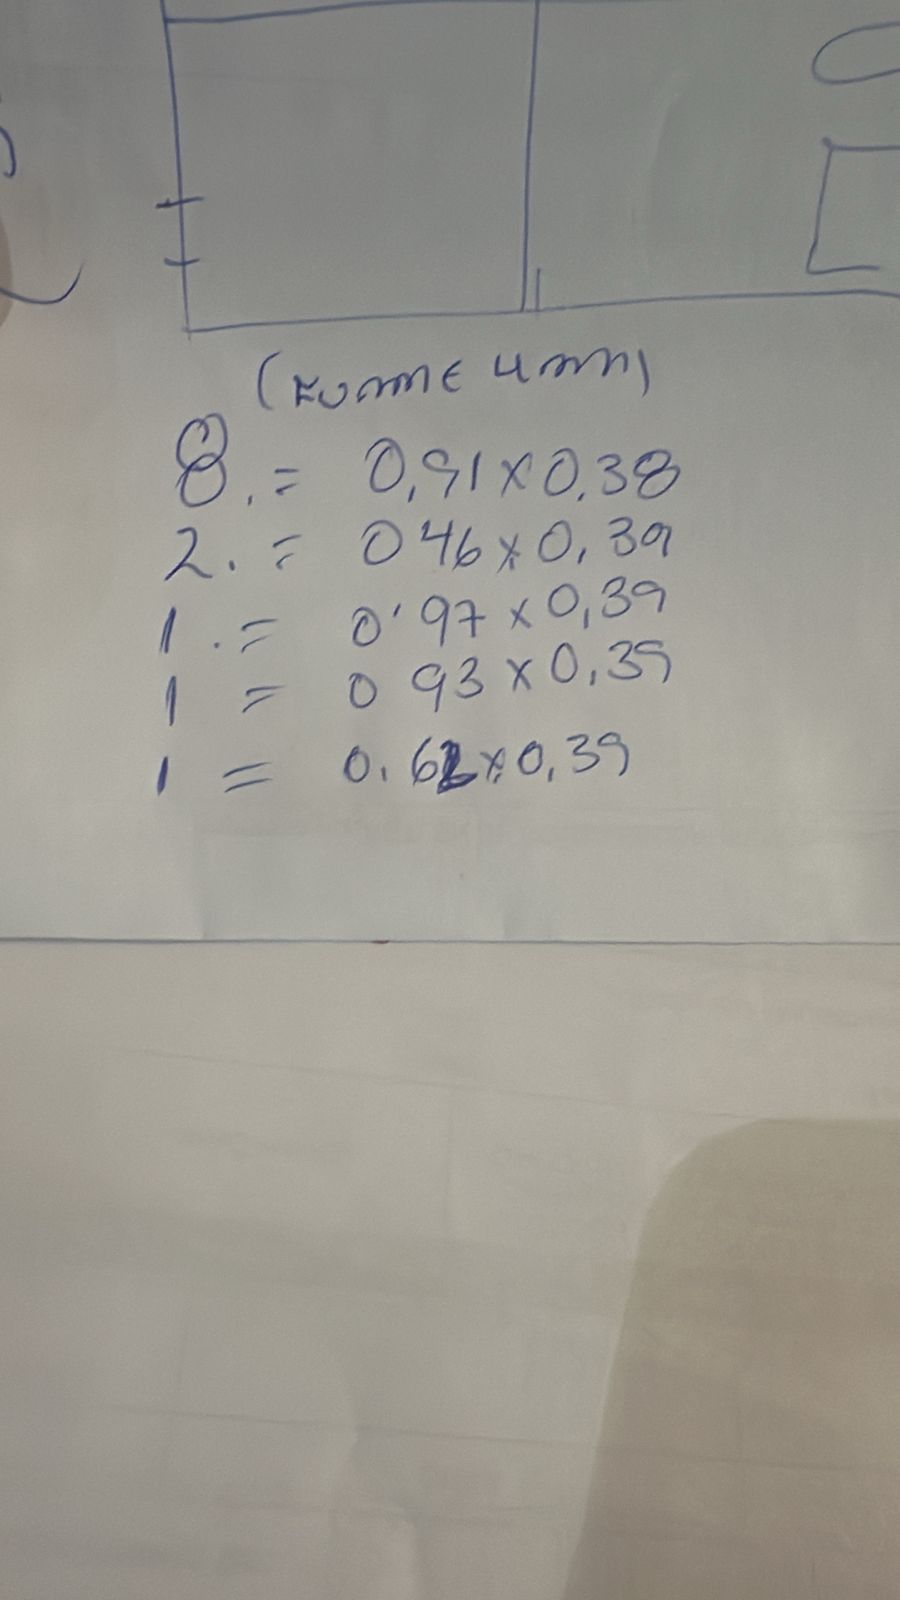 8. = 0,91 x 0,38
2. = 0 46 x 0,39
1. = 0'97 x 0,39
1 = 0 93 x 0,39
1 = 0.62 x 0,39